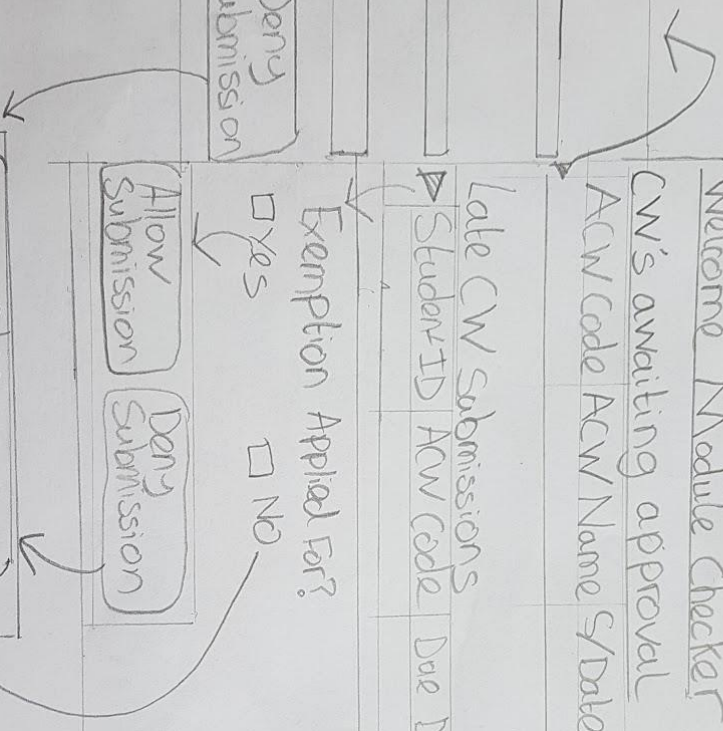 Welcome Module Checker
CW's awaiting approval
ACW Code ACW Name S/Date
Late CW Submissions
Student ID ACW Code Due D
Exemption Applied For?
Yes No
Deny
Submission
Allow
Submission
Deny
Submission